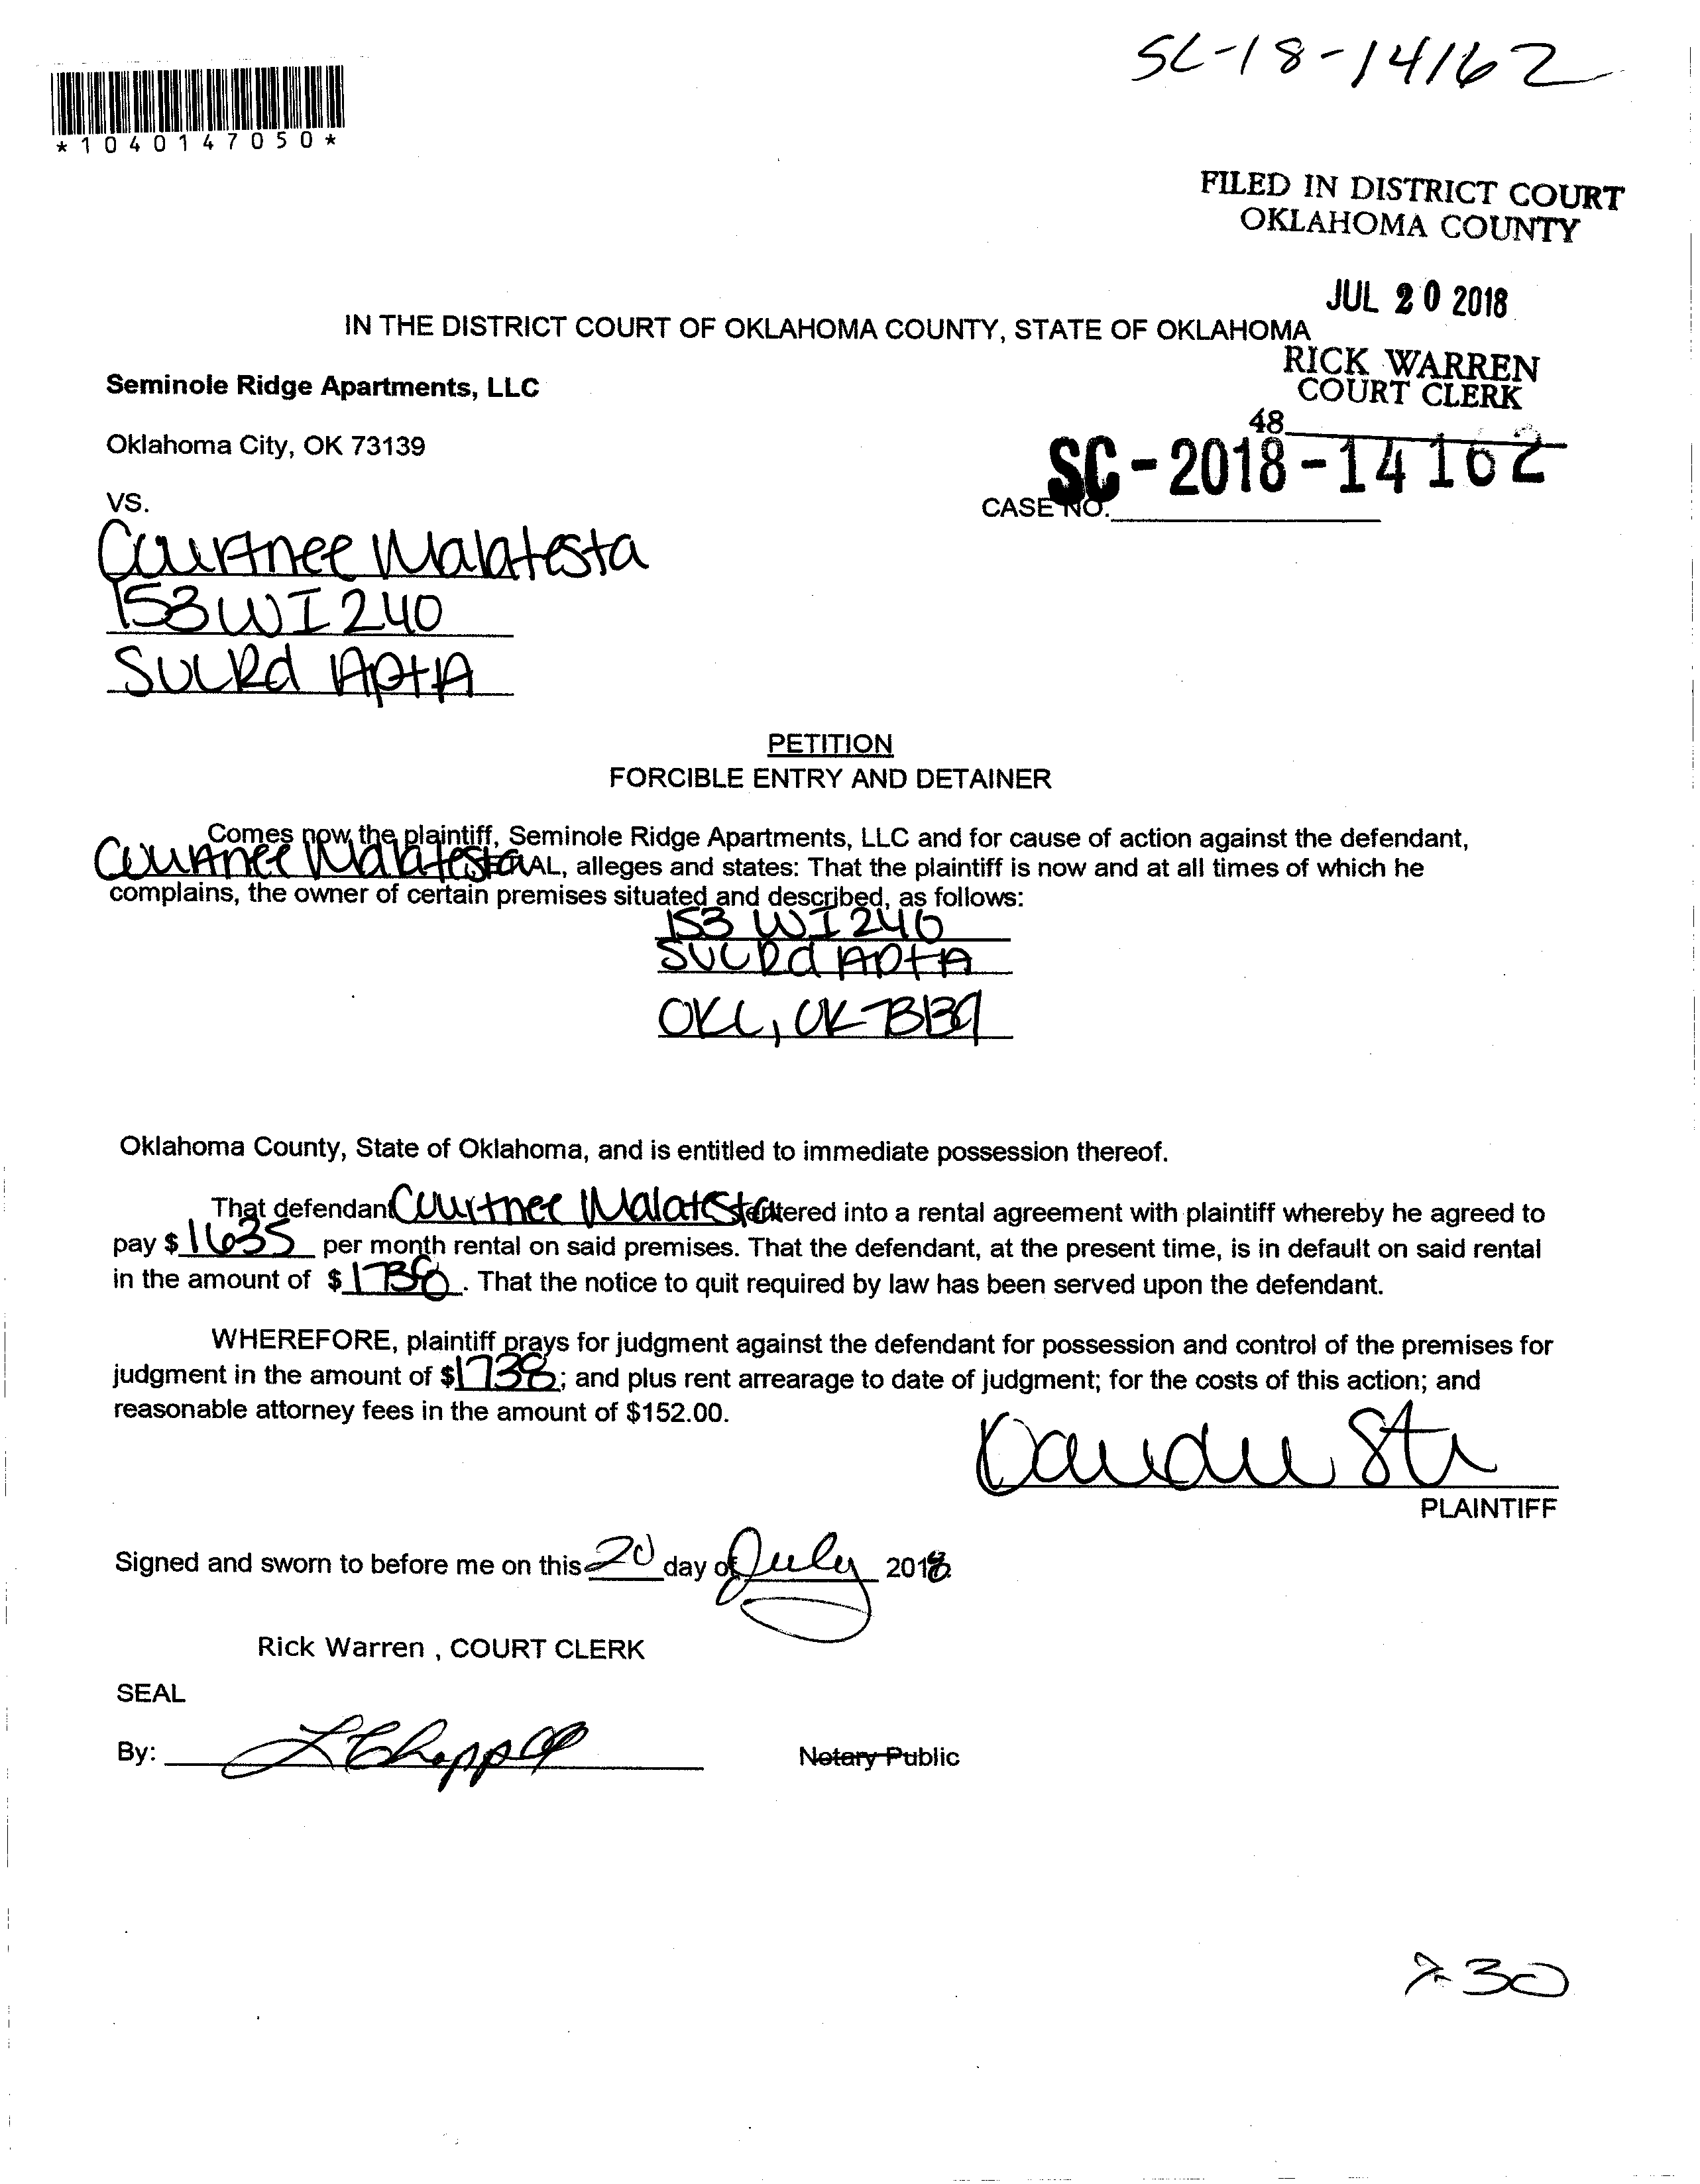 SC-18-14162
*1040147050*
FILED IN DISTRICT COURT
OKLAHOMA COUNTY
JUL 20 2018
IN THE DISTRICT COURT OF OKLAHOMA COUNTY, STATE OF OKLAHOMA
RICK WARREN
COURT CLERK
Seminole Ridge Apartments, LLC
48
Oklahoma City, OK 73139
SC-2018-14162
VS.
CASE NO.
Courtnee Malatesta
153 W I 240
SVC Rd Apt A
PETITION
FORCIBLE ENTRY AND DETAINER
Comes now the plaintiff, Seminole Ridge Apartments, LLC and for cause of action against the defendant,
Courtnee Malatesta ET AL, alleges and states: That the plaintiff is now and at all times of which he
complains, the owner of certain premises situated and described, as follows:
153 W I 240
SVC Rd Apt A
OKC, OK 73139
Oklahoma County, State of Oklahoma, and is entitled to immediate possession thereof.
That defendant Courtnee Malatesta entered into a rental agreement with plaintiff whereby he agreed to
pay $ 1635 per month rental on said premises. That the defendant, at the present time, is in default on said rental
in the amount of $ 1738. That the notice to quit required by law has been served upon the defendant.
WHEREFORE, plaintiff prays for judgment against the defendant for possession and control of the premises for
judgment in the amount of $1738; and plus rent arrearage to date of judgment; for the costs of this action; and
reasonable attorney fees in the amount of $152.00.
PLAINTIFF
Signed and sworn to before me on this 20 day of July 2018
Rick Warren , COURT CLERK
SEAL
By: Notary Public